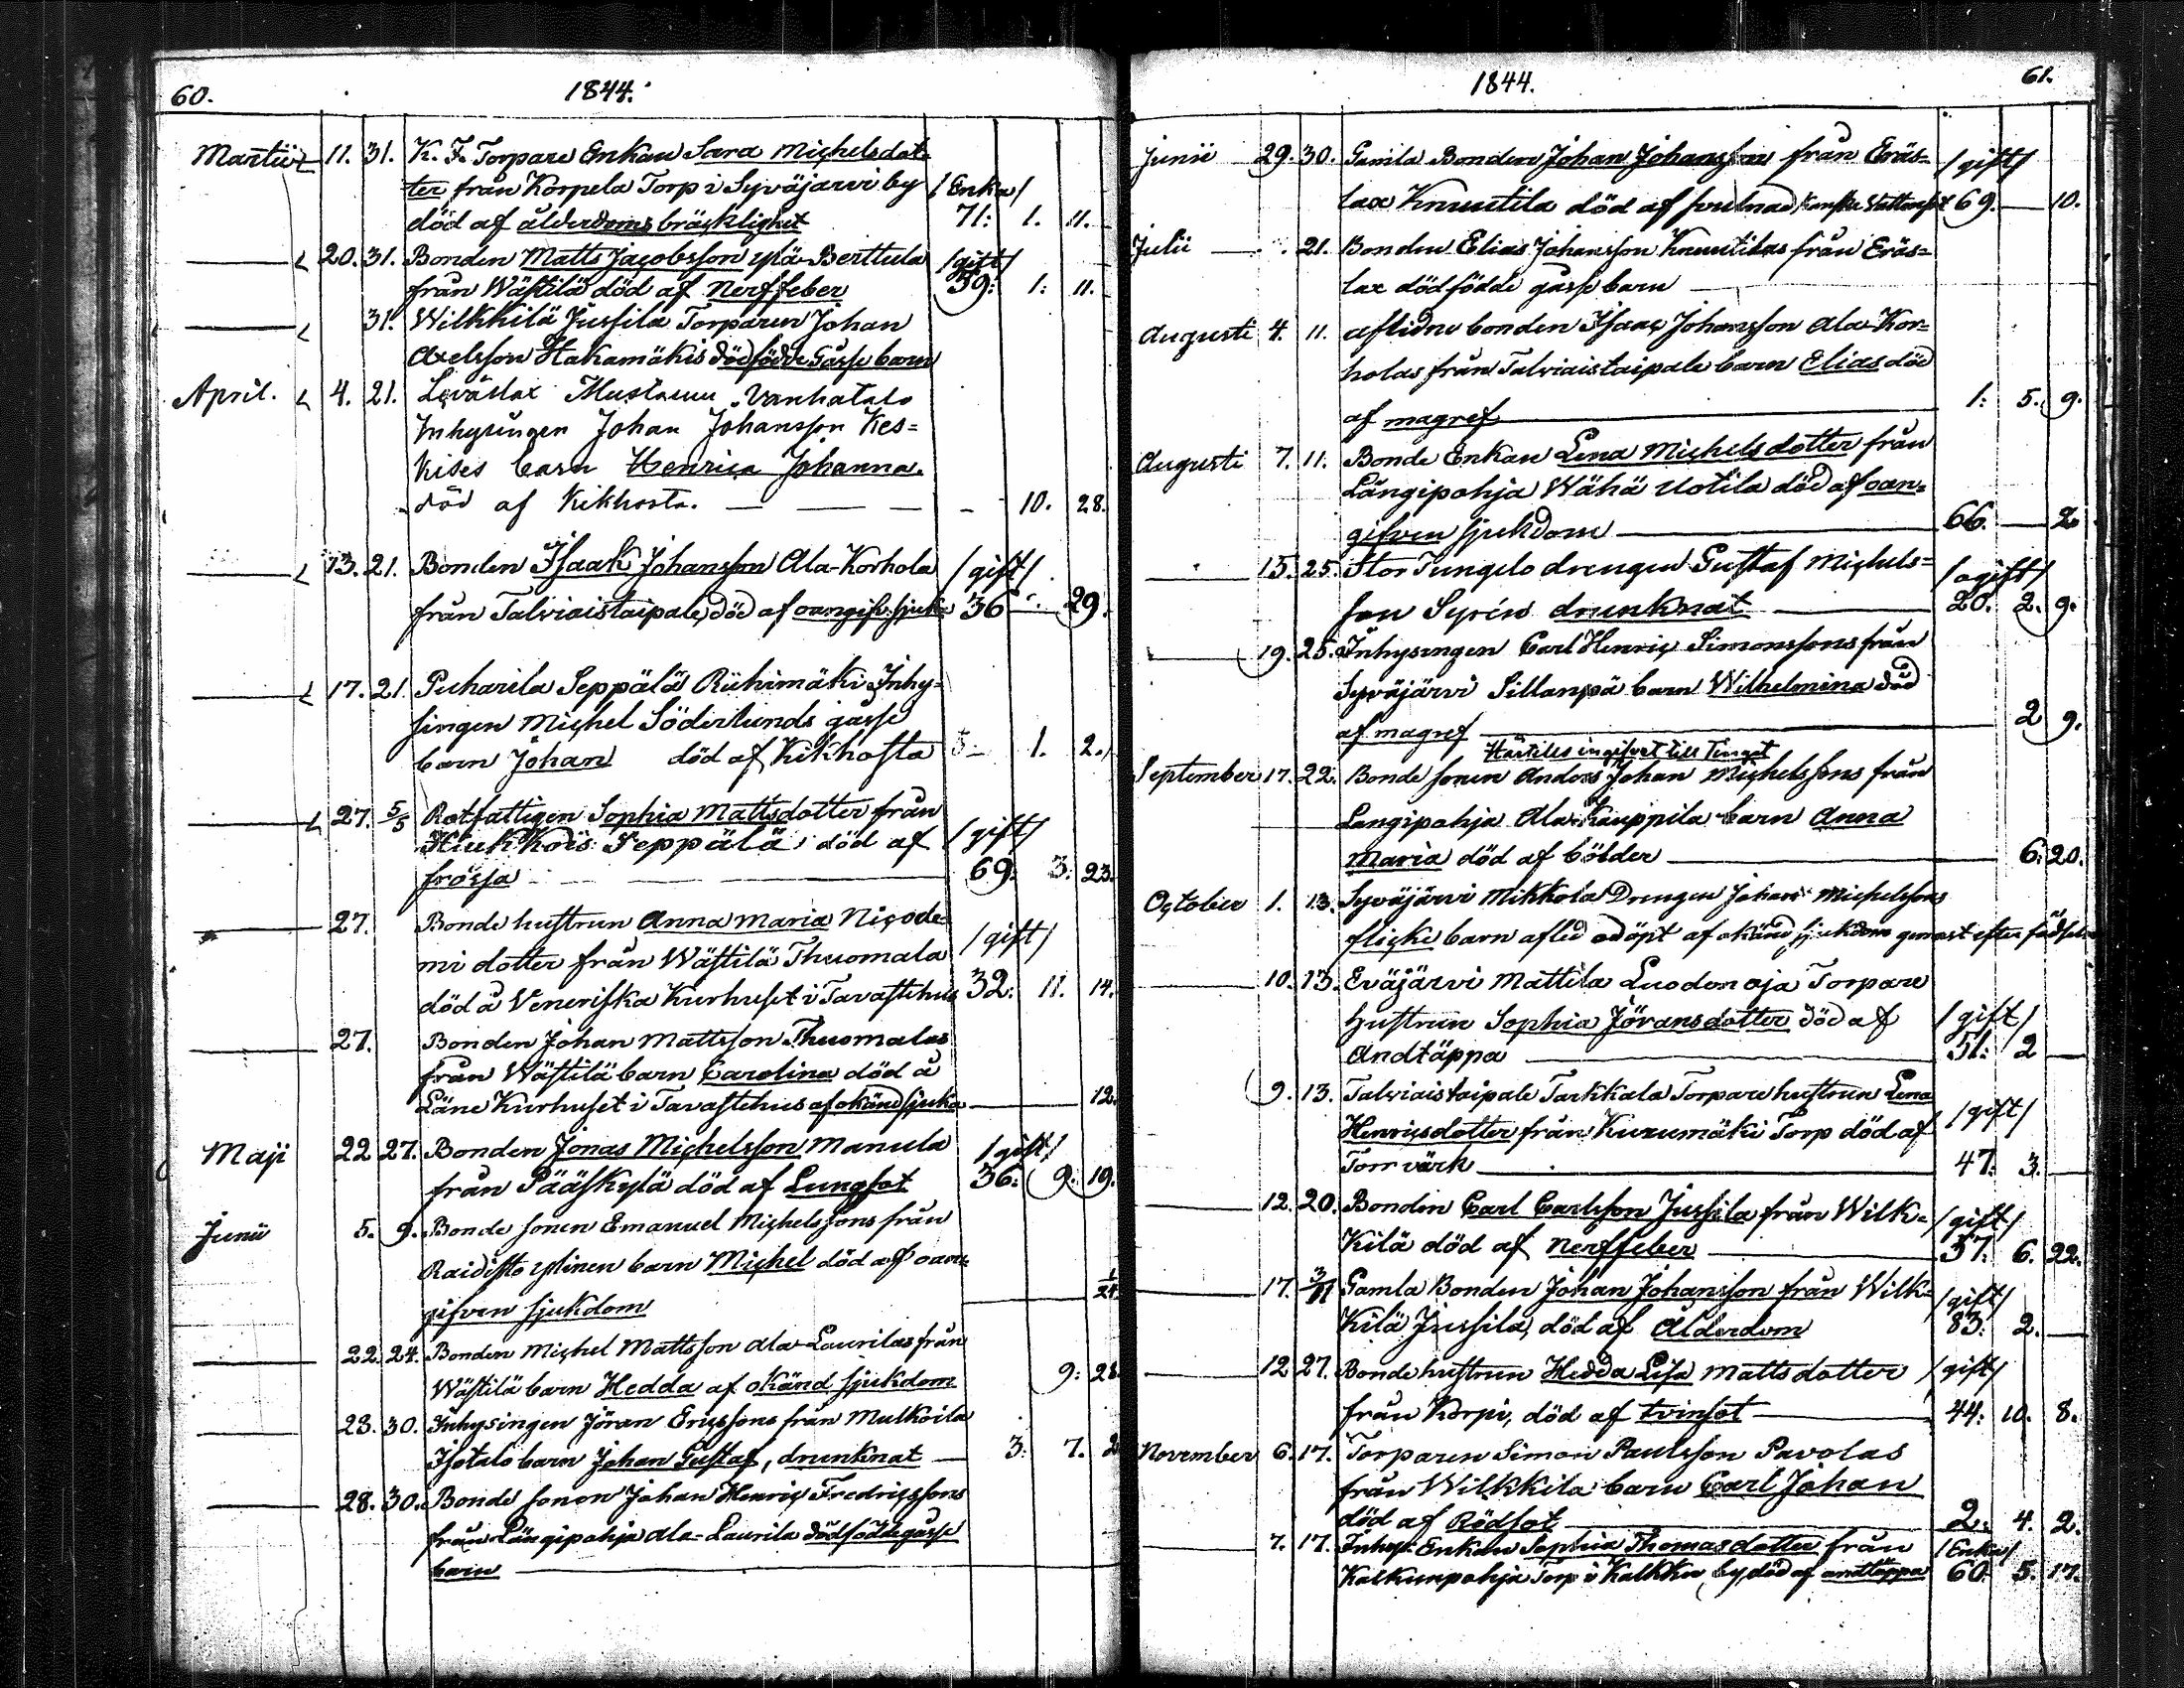 60. 1844.
Martii 11. 31. K. F. Torpare Enkan Sara Michelsdot-
ter från Korpela Torp i Syväjärvi by /Enka/
död af ålderdoms bräcklighet 71: 1. 11.
20. 31. Bonden Matts Jacobsson ylä-Berttula /gift/
från Wästilä död af Nerffeber 39: 1: 11.
31. Wilkkilä Jussila Torparen Johan
Axelsson Hakamäkis dödfödde Gosse barn
April. 4. 21. Mustanu Vanhatalo
Inhysingen Johan Johansson Kes=
kises barn Henrica Johanna.
död af Kikhosta. — — — - 10. 28.
13. 21. Bonden Isaak Johansson Ala-Korhola /gift/
från Talviaistaipale, död af oangifv. sjukd. 36 29.
17. 21. Puharila Seppälä Riihimäki Inhy=
singen Michel Söderlunds gosse
barn Johan död af Kikhosta 5- 1. 2.
27. 5/5 Rotfattigen Sophia Mattsdotter från
Seppälä död af /gift/
frossa 69: 3: 23.
27. Bonde hustrun Anna Maria Nicode=
mi dotter från Wästilä Thuomala /gift/
död å Veneriska Kurhuset i Tavastehus 32: 11. 14.
27. Bonden Johan Mattsson Thuomalas
från Wästilä barn Carolina död å
Läns Kurhuset i Tavastehus af okänd sjukd. 12.
Maji 22 27. Bonden Jonas Michelsson Manula /gift/
från Pääskylä död af Lungsot 36: 9. 19.
Junii 5. 9. Bonde sonen Emanuel Michelssons från
Raidisto ylinen barn Michel död af oan=
gifven sjukdom 1/24
22. 24. Bonden Michel Mattsson Ala-Laurilas från
Wästilä barn Hedda af okänd sjukdom 9: 28.
23. 30. Inhysingen Jöran Ericssons från Mulkoila
Isotalo barn Johan Gustaf, drunknat 3: 7. 2
28. 30. Bonde sonen Johan Henric Fredricssons
från Längipohja Ala-Laurila dödfödde gosse
barn
1844. 61.
Junii 29. 30. Gamla Bonden Johan Johansson från Eräs= /gift/
lax Knuutila död af svulnad, kanske Vattusot 69. — 10.
Julii 21. Bonden Elias Johansson Knuutilas från Eräs=
lax dödfödde gosse barn
Augusti 4. 11. aflidne bonden Isaac Johansson Ala-Kor=
holas från Talviaistaipale barn Elias död
af magref 1: 5. 9.
Augusti 7. 11. Bonde Enkan Lena Michelsdotter från
Längipohja Wähä Uotila död af oan=
gifven sjukdom 66. — 2.
15. 25. Stor Tungelo drengen Gustaf Michels= /ogift/
son Syrén drunknat 20. 2. 9.
19. 25. Inhysingen Carl Henric Simonssons från
Syväjärvi Sillanpä barn Wilhelmina död
af magref 2 9.
Härtills ingifvet till Tinget
September 17. 22. Bonde sonen Anders Johan Michelssons från
Langipohja Ala-Kauppila barn Anna
Maria död af bölder 6: 20.
October 1. 13. Syväjärvi Mikkola Drengen Johan Michelssons
flicke barn afled odöpt af okänd sjukdom genast efter födseln
10. 13. Eväjärvi Mattila Luodonoja Torpare
hustrun Sophia Jöransdotter död af /gift/
Andtäppa 51: 2 —
9. 13. Talviaistaipale Tarkkala Torpare hustrun Lena
Henricsdotter från Kuxumäki Torp död af /gift/
Torrvärk 47: 3. —
12. 20. Bonden Carl Carlsson Jussila från Wilk= /gift/
kilä död af Nerffeber 37. 6. 22.
17. 3/11 Gamla Bonden Johan Johansson från Wilk= /gift/
kilä Jussila, död af Ålderdom 83. 2. —
12 27. Bonde hustrun Hedda Lisa Mattsdotter /gift/
från Korpi, död af tvinsot 44: 10. 8.
November 6. 17. Torparen Simon Paulsson Pavolas
från Wilkkilä barn Carl Johan
död af Rödsot 2: 4. 2.
7. 17. Inhys. Enkan Sophia Thomasdotter från /Enka/
Kaskunpohja Torp i Kalkku by, död af andtäppa 60: 5. 17.